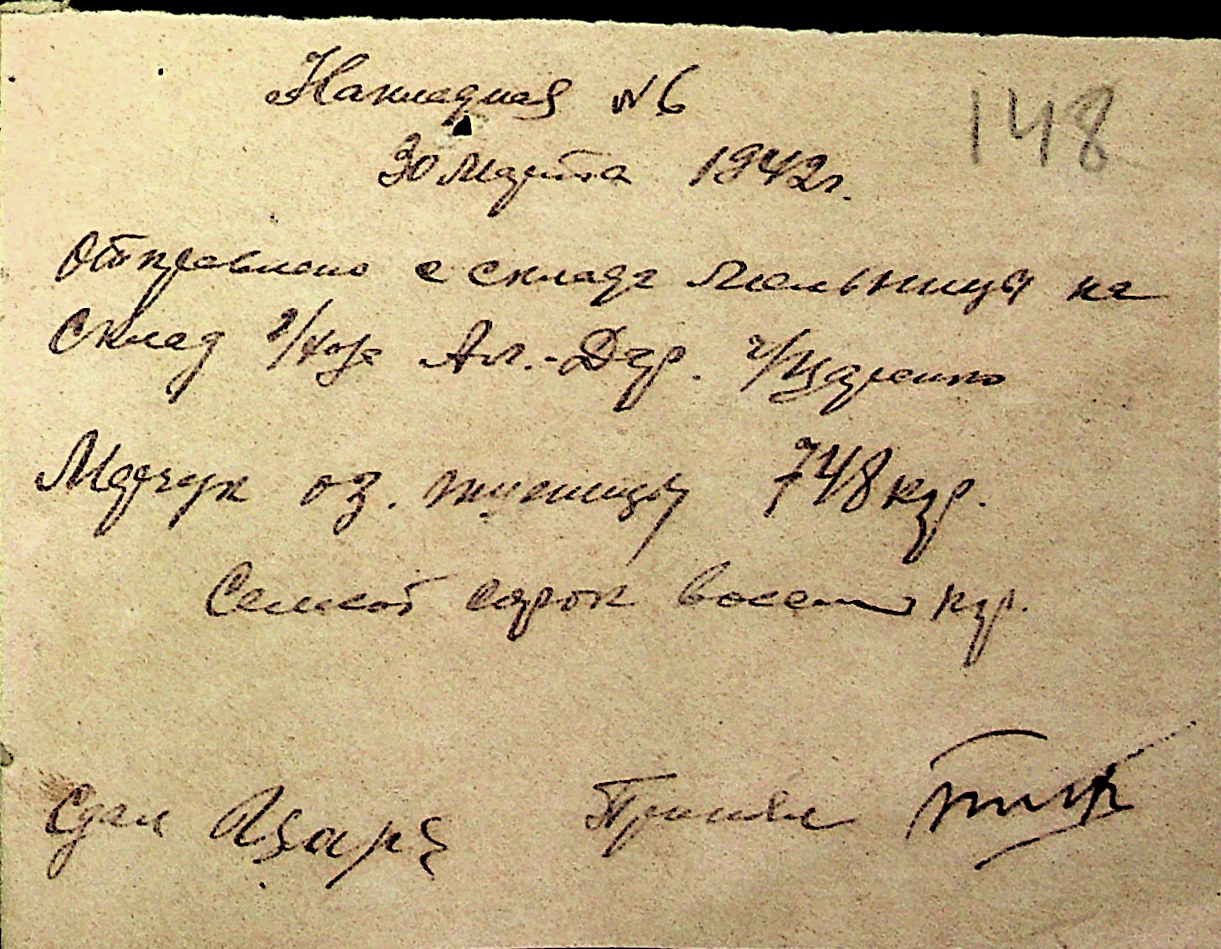 Накладная №6
148
30 Марта 1942г.
Отправлено с склада мельницы на
Склад г/хоз Ал.-Дар. ч/Царенко
Мерчук оз. пшеницы 748 кгр.
Семсот сорок восем кгр.
Сдал Царе Принял